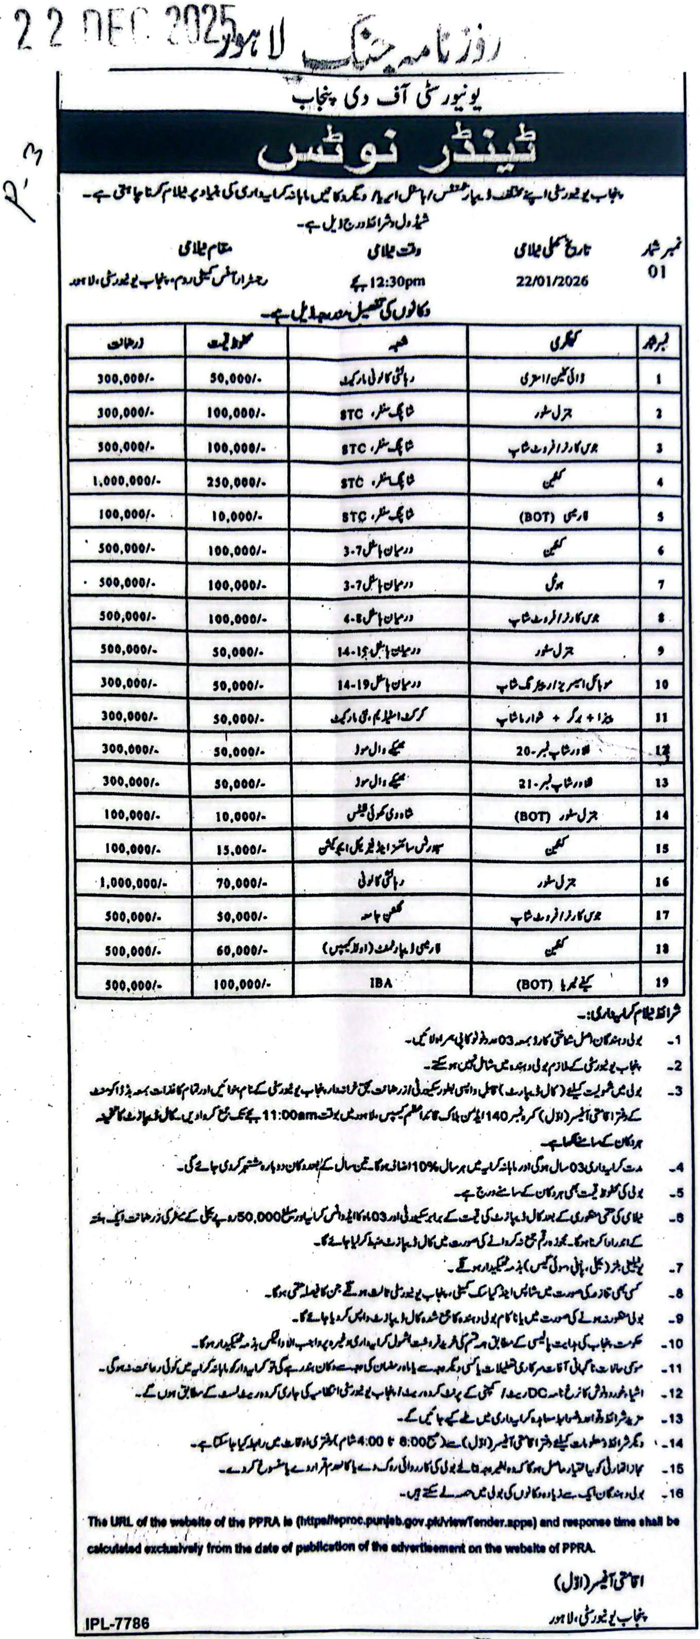 22 DEC 2025
روزنامہ جنگ لاہور
P-3
یونیورسٹی آف دی پنجاب
ٹینڈر نوٹس
پنجاب یونیورسٹی اپنے مختلف ڈیپارٹمنٹس/ہاسٹل ایریا/ودیگر دکانیں ماہانہ کرایہ داری کی بنیاد پر نیلام کرنا چاہتی ہے۔
شیڈول و شرائط درج ذیل ہے۔
نمبر شمار تاریخ کھلی نیلامی وقت نیلامی مقام نیلامی
01 22/01/2026 12:30pm بجے رجسٹرار آفس کمیٹی روم، پنجاب یونیورسٹی، لاہور
دکانوں کی تفصیل مندرجہ ذیل ہے۔
نمبر شمار کیٹگری شعبہ محفوظ قیمت زرضمانت
1 ڈرائی کلین/استری رہائشی کالونی مارکیٹ 50,000/- 300,000/-
2 جنرل سٹور شاپنگ سنٹر، STC 100,000/- 300,000/-
3 جوس کارنر/فروٹ شاپ شاپنگ سنٹر، STC 100,000/- 500,000/-
4 کنٹین شاپنگ سنٹر، STC 250,000/- 1,000,000/-
5 فارمیسی (BOT) شاپنگ سنٹر، STC 10,000/- 100,000/-
6 کنٹین درمیان ہاسٹل 7-3 100,000/- 500,000/-
7 ہوٹل درمیان ہاسٹل 7-3 100,000/- 500,000/-
8 جوس کارنر/فروٹ شاپ درمیان ہاسٹل 8-4 100,000/- 500,000/-
9 جنرل سٹور درمیان ہاسٹل 15-14 50,000/- 500,000/-
10 موبائل اسیسریز/پرنٹنگ شاپ درمیان ہاسٹل 19-14 50,000/- 300,000/-
11 پیزا + برگر + شوارما شاپ کرکٹ اسٹیڈیم، نئی مارکیٹ 50,000/- 300,000/-
12 فلاور شاپ نمبر-20 بھیکے وال موڑ 50,000/- 300,000/-
13 فلاور شاپ نمبر-21 بھیکے وال موڑ 50,000/- 300,000/-
14 جنرل سٹور (BOT) شادی کھوئی فلیٹس 10,000/- 100,000/-
15 کنٹین سپورٹس سائنسز اینڈ فزیکل ایجوکیشن 15,000/- 100,000/-
16 جنرل سٹور رہائشی کالونی 70,000/- 1,000,000/-
17 جوس کارنر/فروٹ شاپ گلشن جامعہ 50,000/- 500,000/-
18 کنٹین فارمیسی ڈیپارٹمنٹ (اولڈ کیمپس) 60,000/- 500,000/-
19 کیفے ٹیریا (BOT) IBA 100,000/- 500,000/-
شرائط نیلام کرایہ داری:۔
1۔ بولی دہندگان اصل شناختی کارڈ بمعہ 03 عدد فوٹو کاپی ہمراہ لائیں۔
2۔ پنجاب یونیورسٹی کے ملازم بولی دہندہ میں شامل نہیں ہو سکتے۔
3۔ بولی میں شمولیت کیلئے (کال ڈیپازٹ) قابل واپسی بطور سیکیورٹی/زرضمانت بحق خزانہ دار پنجاب یونیورسٹی کے نام بنوائیں اور تمام کاغذات بمعہ بڈ ڈاکومنٹ
کے دفتر اقامتی آفیسر (اوّل) کمرہ نمبر 140 ایڈمن بلاک قائداعظم کیمپس، لاہور میں بوقت 11:00am بجے تک جمع کروا دیں۔ کال ڈیپازٹ کا تخمینہ
ہر دکان کے سامنے لکھا ہے۔
4۔ مدت کرایہ داری 03 سال ہوگی اور ماہانہ کرایہ میں ہر سال 10% اضافہ ہوگا۔ تین سال کے بعد دکان دوبارہ مشتہر کر دی جائے گی۔
5۔ بولی کی محفوظ قیمت بھی ہر دکان کے سامنے درج ہے۔
6۔ نیلامی کی حتمی منظوری کے بعد کال ڈیپازٹ کی قیمت کے برابر سیکیورٹی اور 03 ماہ کا ایڈوانس کرایہ اور مبلغ 50,000 روپے بجلی کے میٹر کی زرضمانت ایک ہفتہ
کے اندر ادا کرنا ہوگا۔ مجوزہ رقم جمع نہ کروانے کی صورت میں کال ڈیپازٹ ضبط کر لیا جائے گا۔
7۔ یوٹیلٹی بلز (بجلی، پانی، سوئی گیس) بذمہ ٹھیکیدار ہونگے۔
8۔ کسی بھی تنازعہ کی صورت میں شاپس اینڈ کیاسک کمیٹی، پنجاب یونیورسٹی ثالث ہونگے جن کا فیصلہ حتمی ہوگا۔
9۔ بولی منظور نہ ہونے کی صورت میں ناکام بولی دہندہ کا جمع شدہ کال ڈیپازٹ واپس کر دیا جائے گا۔
10۔ حکومت پنجاب کی ہدایت پالیسی کے مطابق ہمہ قسم کی خرید فروخت بشمول کرایہ داری وغیرہ پر واجب الادا ٹیکس بذمہ ٹھیکیدار ہوگا۔
11۔ موسمی حالات، ناگہانی آفات، سرکاری تعطیلات یا کسی دیگر وجہ سے یا ماہ رمضان کی وجہ سے دکان بند رہے گی تو کرایہ دار کو ماہانہ کرایہ میں کوئی رعایت نہ ہوگی۔
12۔ اشیاء خوردونوش کا نرخ نامہ DC ریٹ/کمپنی کے پرنٹ کردہ ریٹ/پنجاب یونیورسٹی انتظامیہ کی جاری کردہ ریٹ لسٹ کے مطابق ہوں گے۔
13۔ مزید شرائط و قواعد و ضوابط معاہدہ کرایہ داری میں طے کیے جائیں گے۔
14۔ دیگر شرائط و معلومات کیلئے دفتر اقامتی آفیسر (اوّل) سے (صبح 8:00 تا 4:00 شام) دفتری اوقات میں رابطہ کیا جا سکتا ہے۔
15۔ مجاز اتھارٹی کو یہ اختیار حاصل ہوگا کہ وہ بغیر وجہ بتائے بولی کی کارروائی روک دے یا کالعدم قرار دے یا منسوخ کر دے۔
16۔ بولی دہندگان ایک سے زیادہ دکانوں کی بولی میں حصہ لے سکتے ہیں۔
The URL of the website of the PPRA is (https//eproc.punjab.gov.pk/viewTender.apps) and response time shall be
calculated exclusively from the date of publication of the advertisement on the website of PPRA.
اقامتی آفیسر (اوّل)
پنجاب یونیورسٹی، لاہور
IPL-7786